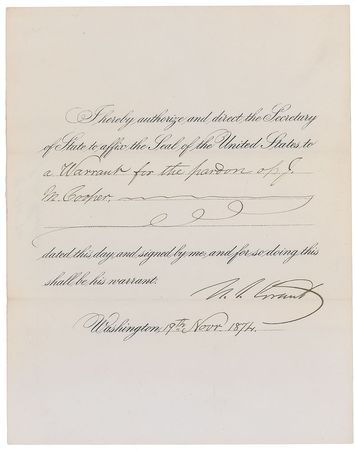 I hereby authorize and direct the Secretary
of State to affix the Seal of the United States to
a Warrant for the pardon of J.
M. Cooper.
dated this day, and signed by me, and for so doing this
shall be his warrant.
U. S. Grant
Washington, 19th Novr. 1874.